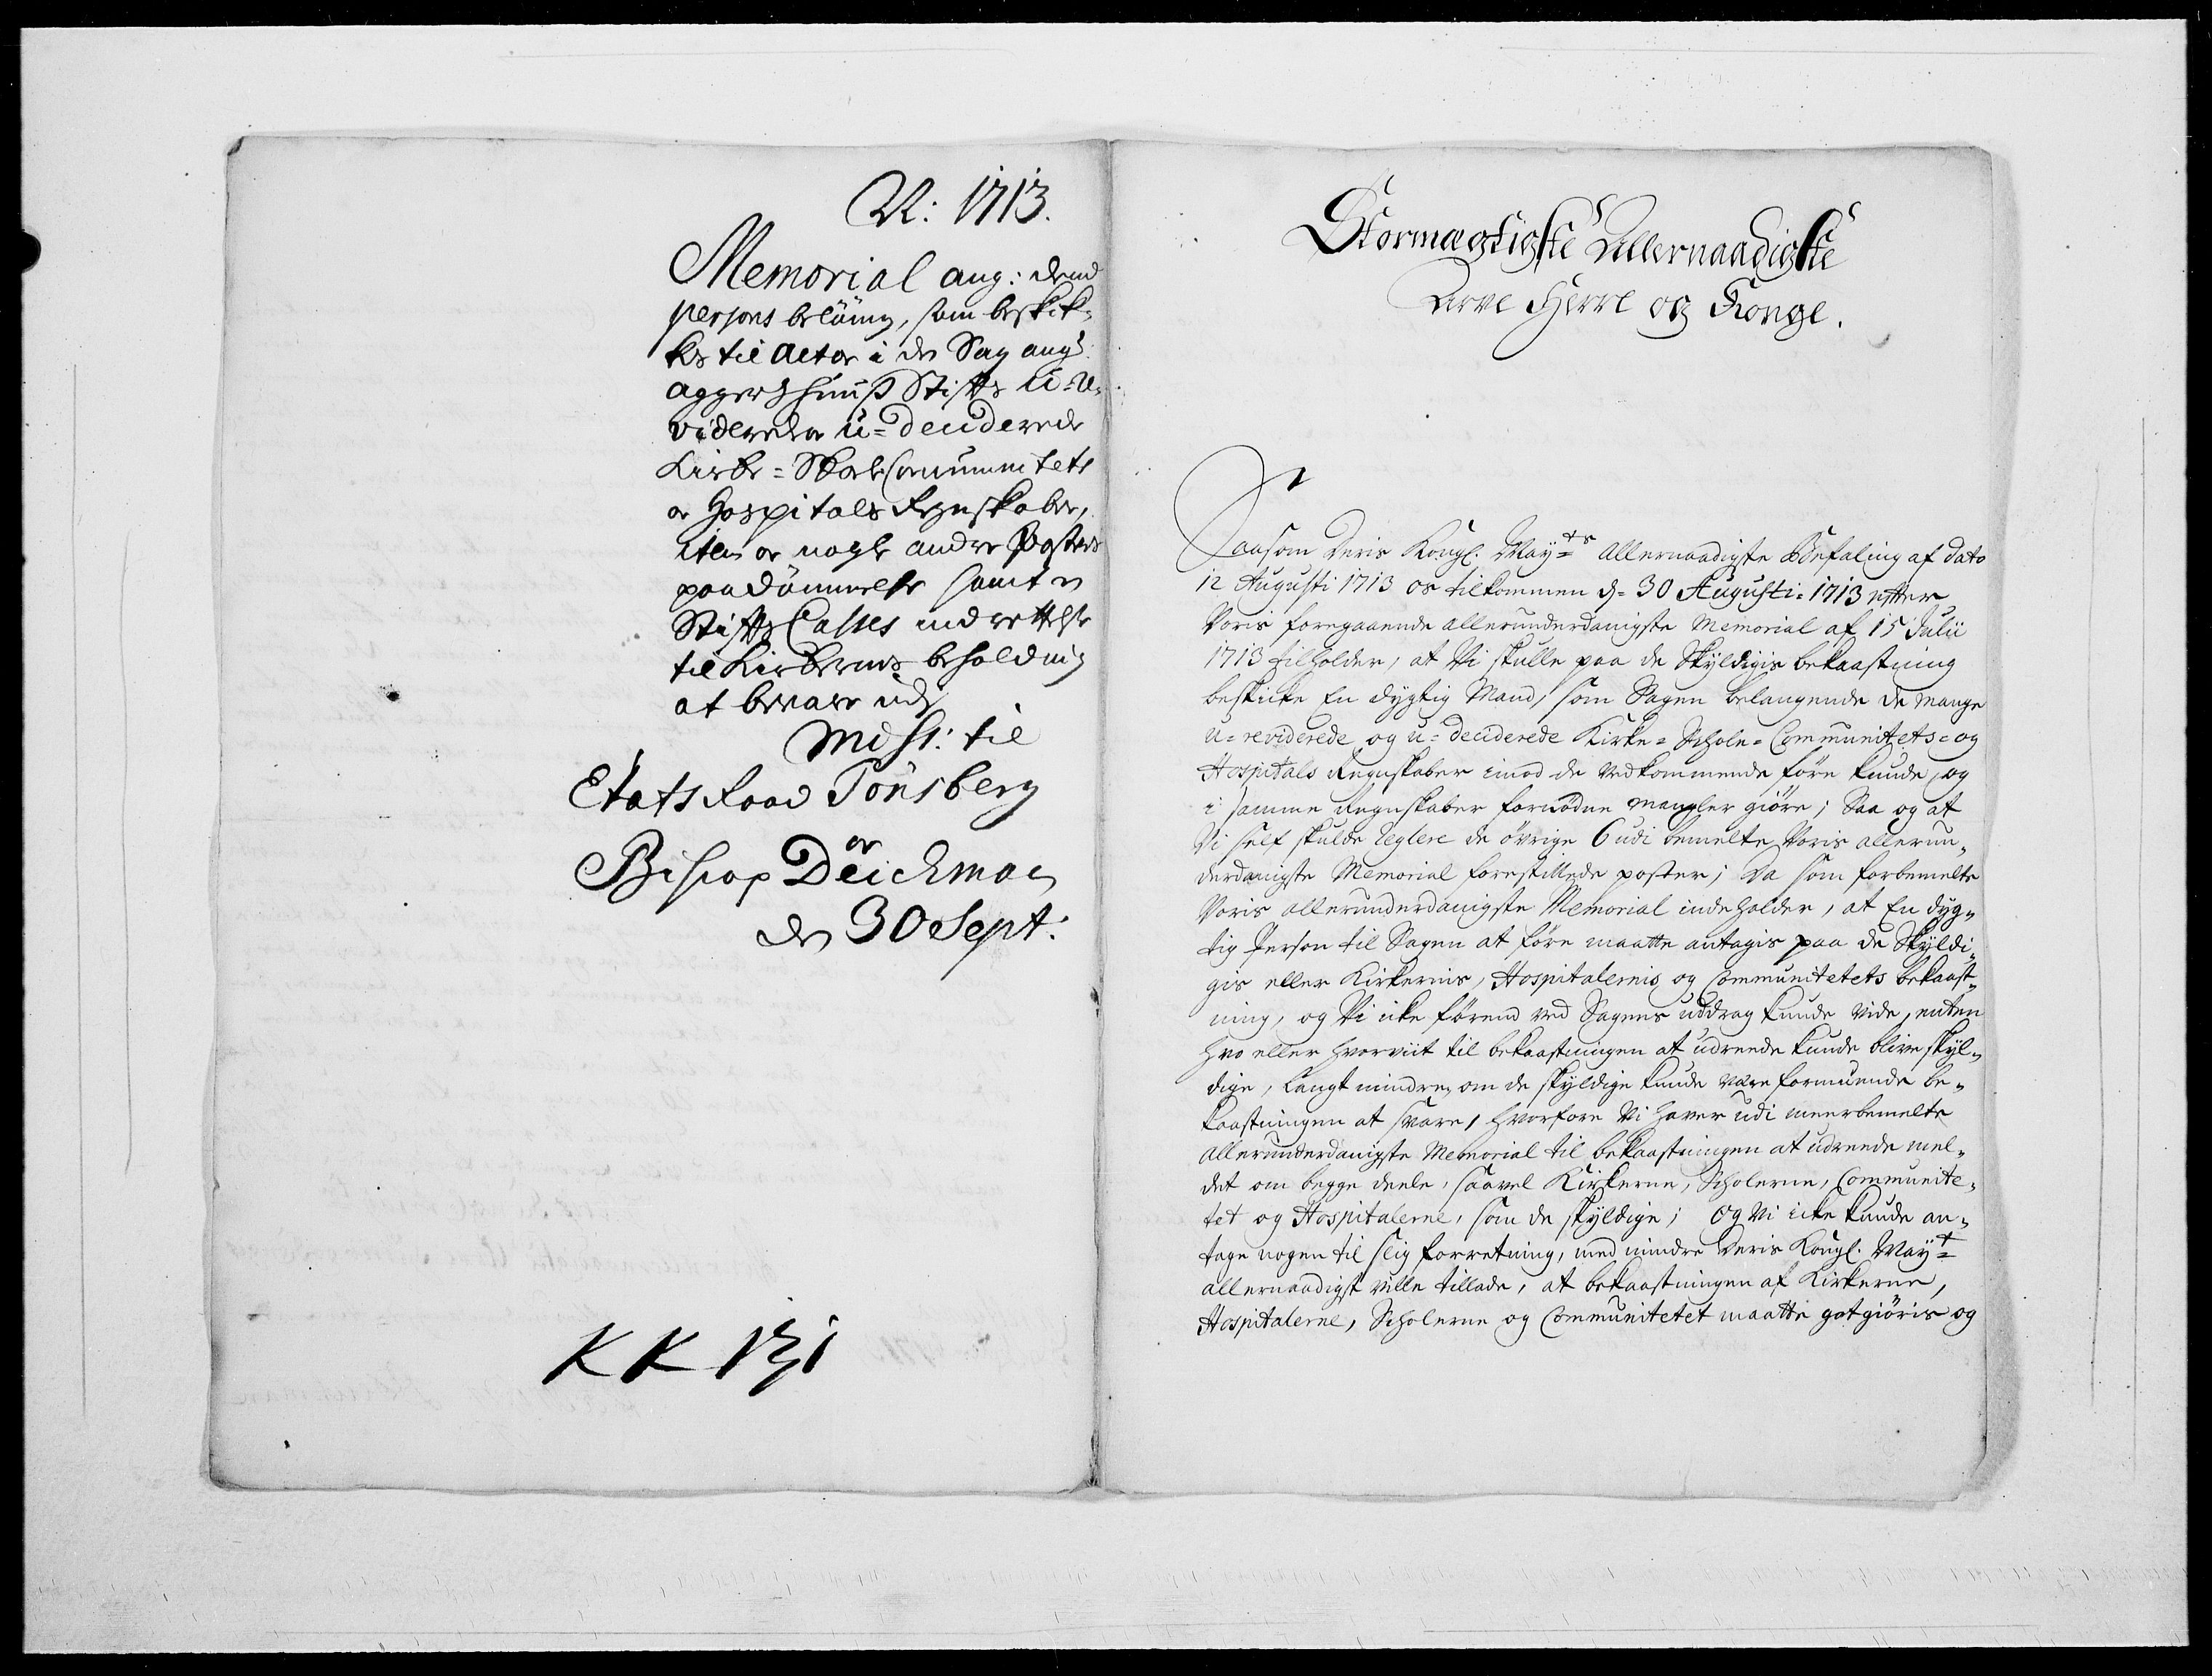 A: 1713.
Memorial ang: dend
persons belöning, som beskik-
kes til Actor i den Sag angd
Aggershuus Stifts U-re-
viderede u-deciderede
Kirke-Skole Communitets
oc Hospitals Regnskaber,
item oc nogle andre Posters
paadömmelse samt en
Stifts Casses indrettelse
til Kirkernes beholdning
at bevare udj
Miss: til
Etats Raad Tönsberg
oc
Biscop Deichman
den 30 Sept:
KK
Stormægtigste Allernaadigste
Arve Herre og Konge.
Saasom Deris Kongl. Mayts allernaadigste Befaling af dato
12 Augusti 1713 os tilkommen d- 30 Augusti 1713 efter
Voris foregaaende allerunderdanigste Memorial af 15 Julii
1713 tilholder, at Vi skulle paa de Skyldigis bekaastning
beskicke En dygtig Mand, som Sagen belangende de mange
u-reviderede og u-deciderede Kirke-Schole-Communitets-og
Hospitals Regnskaber imod de Vedkommende føre kunde, og
i samme Regnskaber fornødne mangler giøre; Saa og at
Vi self skulde reglere de øvrige 6 udi bemelte Voris allerun-
derdanigste Memorial forestillede poster; Da som forbemelte
Voris allerunderdanigste Memorial indeholder, at En dyg-
tig Person til Sagen at føre maatte antagis paa de Skyldi-
gis eller Kirkernis, Hospitalernis og Communitetets bekaast-
ning, og Vi icke førend ved Sagens uddrag kunde vide, enten
hvo eller hvorviit til bekaastningen at udreede kunde blive skyl-
dige, langt mindre, om de skyldige kunde være formuende be-
kaastningen at svare, hvorfore Vi haver udi meerbemelte
allerunderdanigste Memorial til bekaastningen at udreede mel-
det om begge deele, saavel Kirkerne, Scholerne, Communite-
tet og Hospitalerne, som de skyldige; Og Vi icke kunde an-
tage nogen til slig forretning, med mindre Deris Kongl. Mayt
allernaadigst ville tillade, at bekaastningen af Kirkerne,
Hospitalerne, Scholerne og Communitetet maatte gotgiøris og